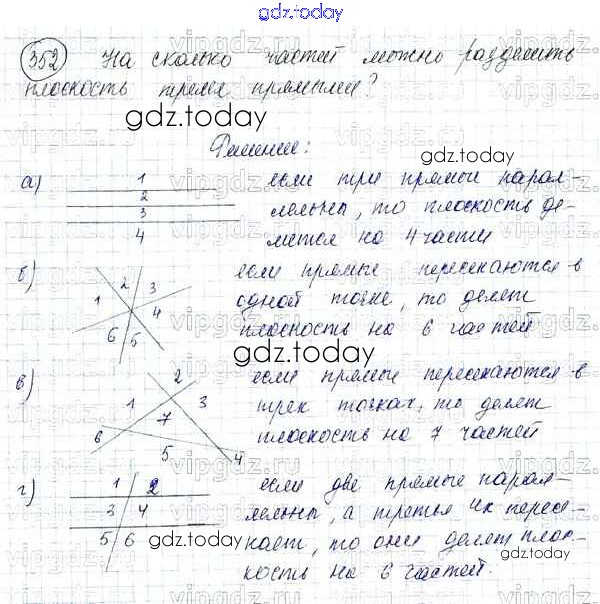 gdz.today
352 На сколько частей можно разделить
плоскость тремя прямыми?
gdz.today
Решение:
gdz.today
а) 1 если три прямые парал-
2 лельны, то плоскость де-
3 лится на 4 части
4
gdz.today
б) 1 2 3 4 5 6 если прямые пересекаются в
одной точке, то делят
плоскость на 6 частей
gdz.today
в) 1 2 3 4 5 6 7 если прямые пересекаются в
трех точках, то делят
плоскость на 7 частей
gdz.today
г) 1 2 если две прямые парал-
3 4 лельны, а третья их пересе-
5 6 кает, то они делят плос-
кость на 6 частей.
gdz.today
vipgdz.ru